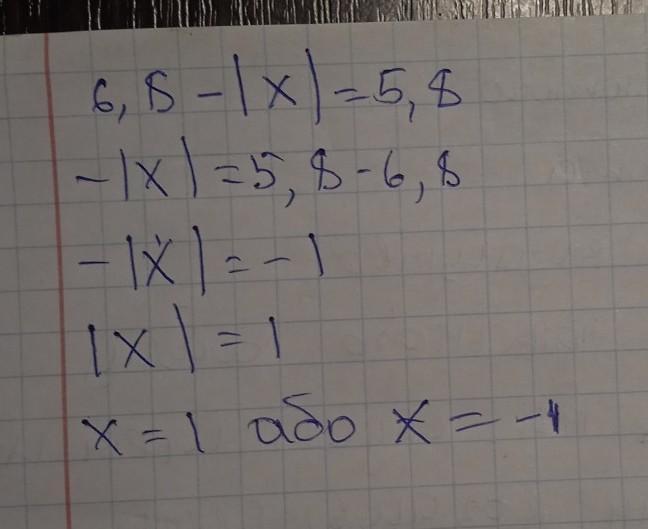 6,8 - |x| = 5,8
-|x| = 5,8 - 6,8
-|x| = -1
|x| = 1
x = 1 або x = -1